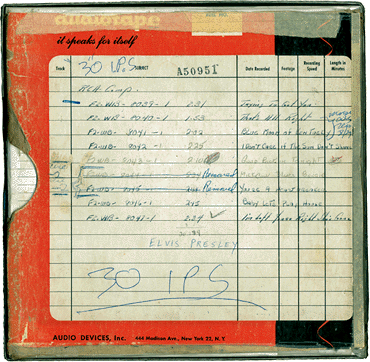 audiotape
it speaks for itself
Track SUBJECT A50951 Date Recorded Footage Recording Speed Length in Minutes
30 I.P.S
RCA Comp.
F2-WB-8039-1 2:31 Trying To Get You
F2-WB-8040-1 That's All Right
F2-WB-8041-1 Blue Moon of Kentucky
F2-WB-8042-1 2:25 I Don't Care If The Sun Don't Shine
F2-WB-8043-1 2:10 Good Rockin Tonight
Removed Milkcow Blues Boogie
Removed You're A Heartbreaker
F2-WB-8046-1 2:15 Baby Lets Play House
F2-WB-8047-1 2:29 I'm Left You're Right She's Gone
ELVIS PRESLEY
30 IPS
AUDIO DEVICES, Inc. 444 Madison Ave., New York 22, N.Y.